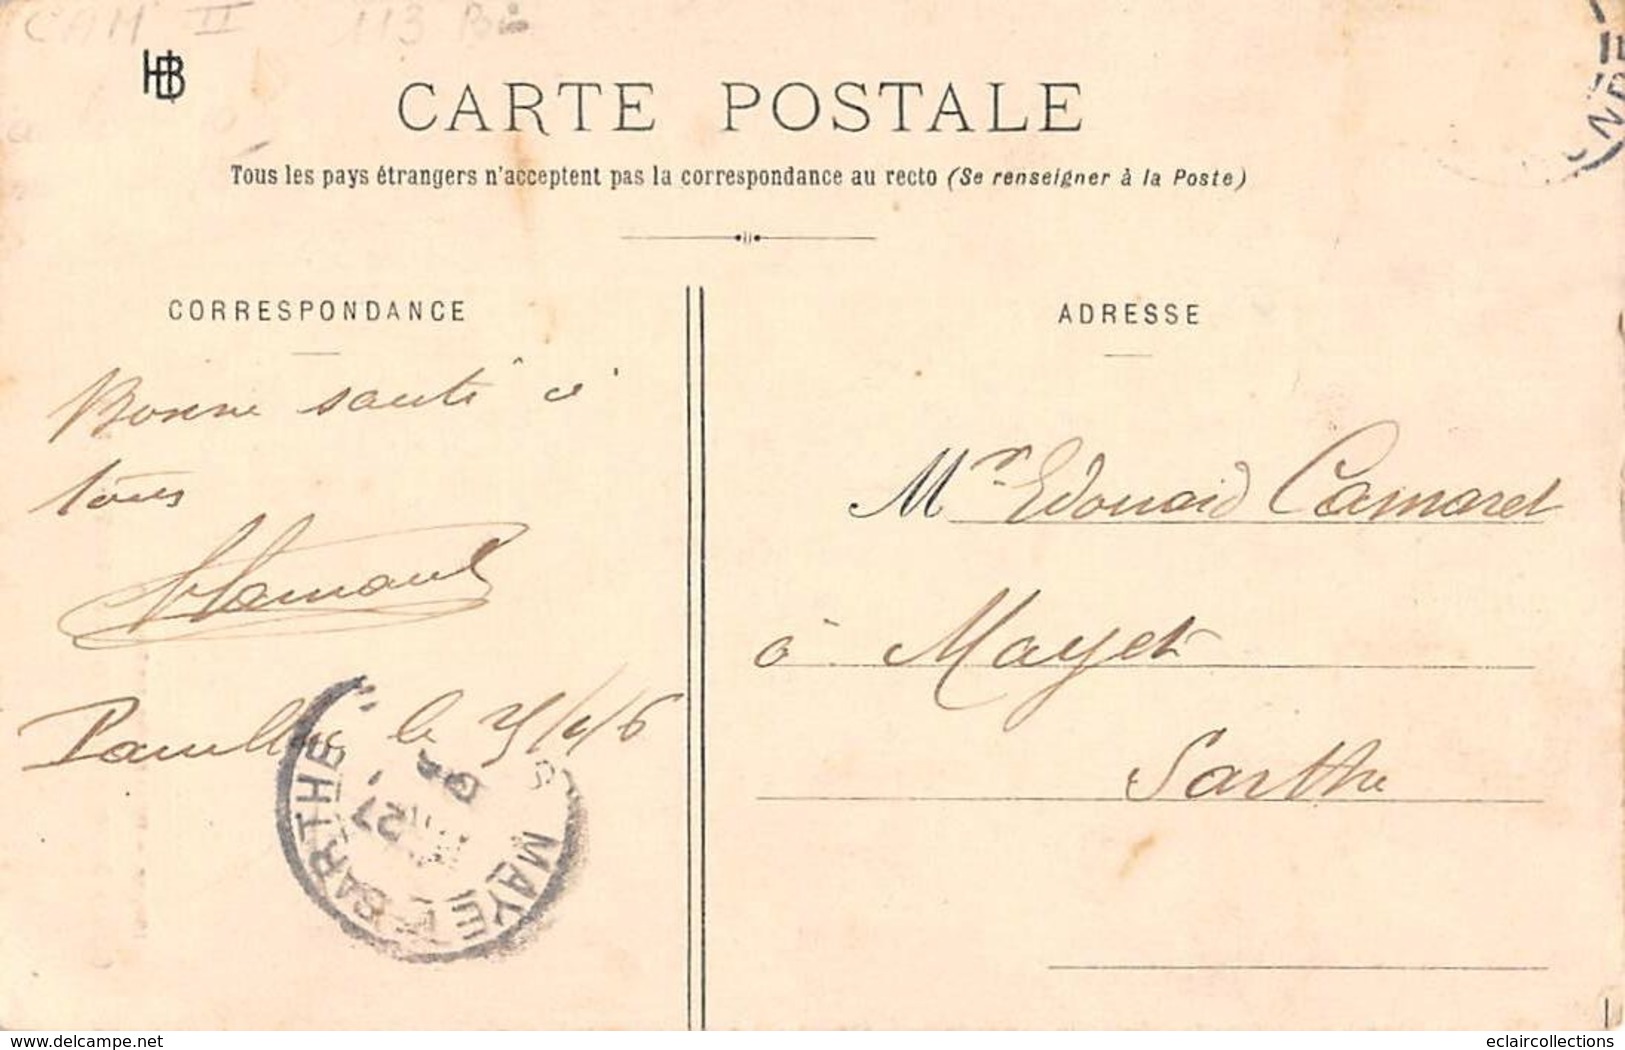 CAM II 113 B
HB
CARTE POSTALE
Tous les pays étrangers n'acceptent pas la correspondance au recto (Se renseigner à la Poste)
CORRESPONDANCE
Bonne santé à
tous
le 25/4/6
MAYET SARTHE
27
ADRESSE
Mr Edouard Camaret
à Mayet
Sarthe
www.delcampe.net
eclaircollections